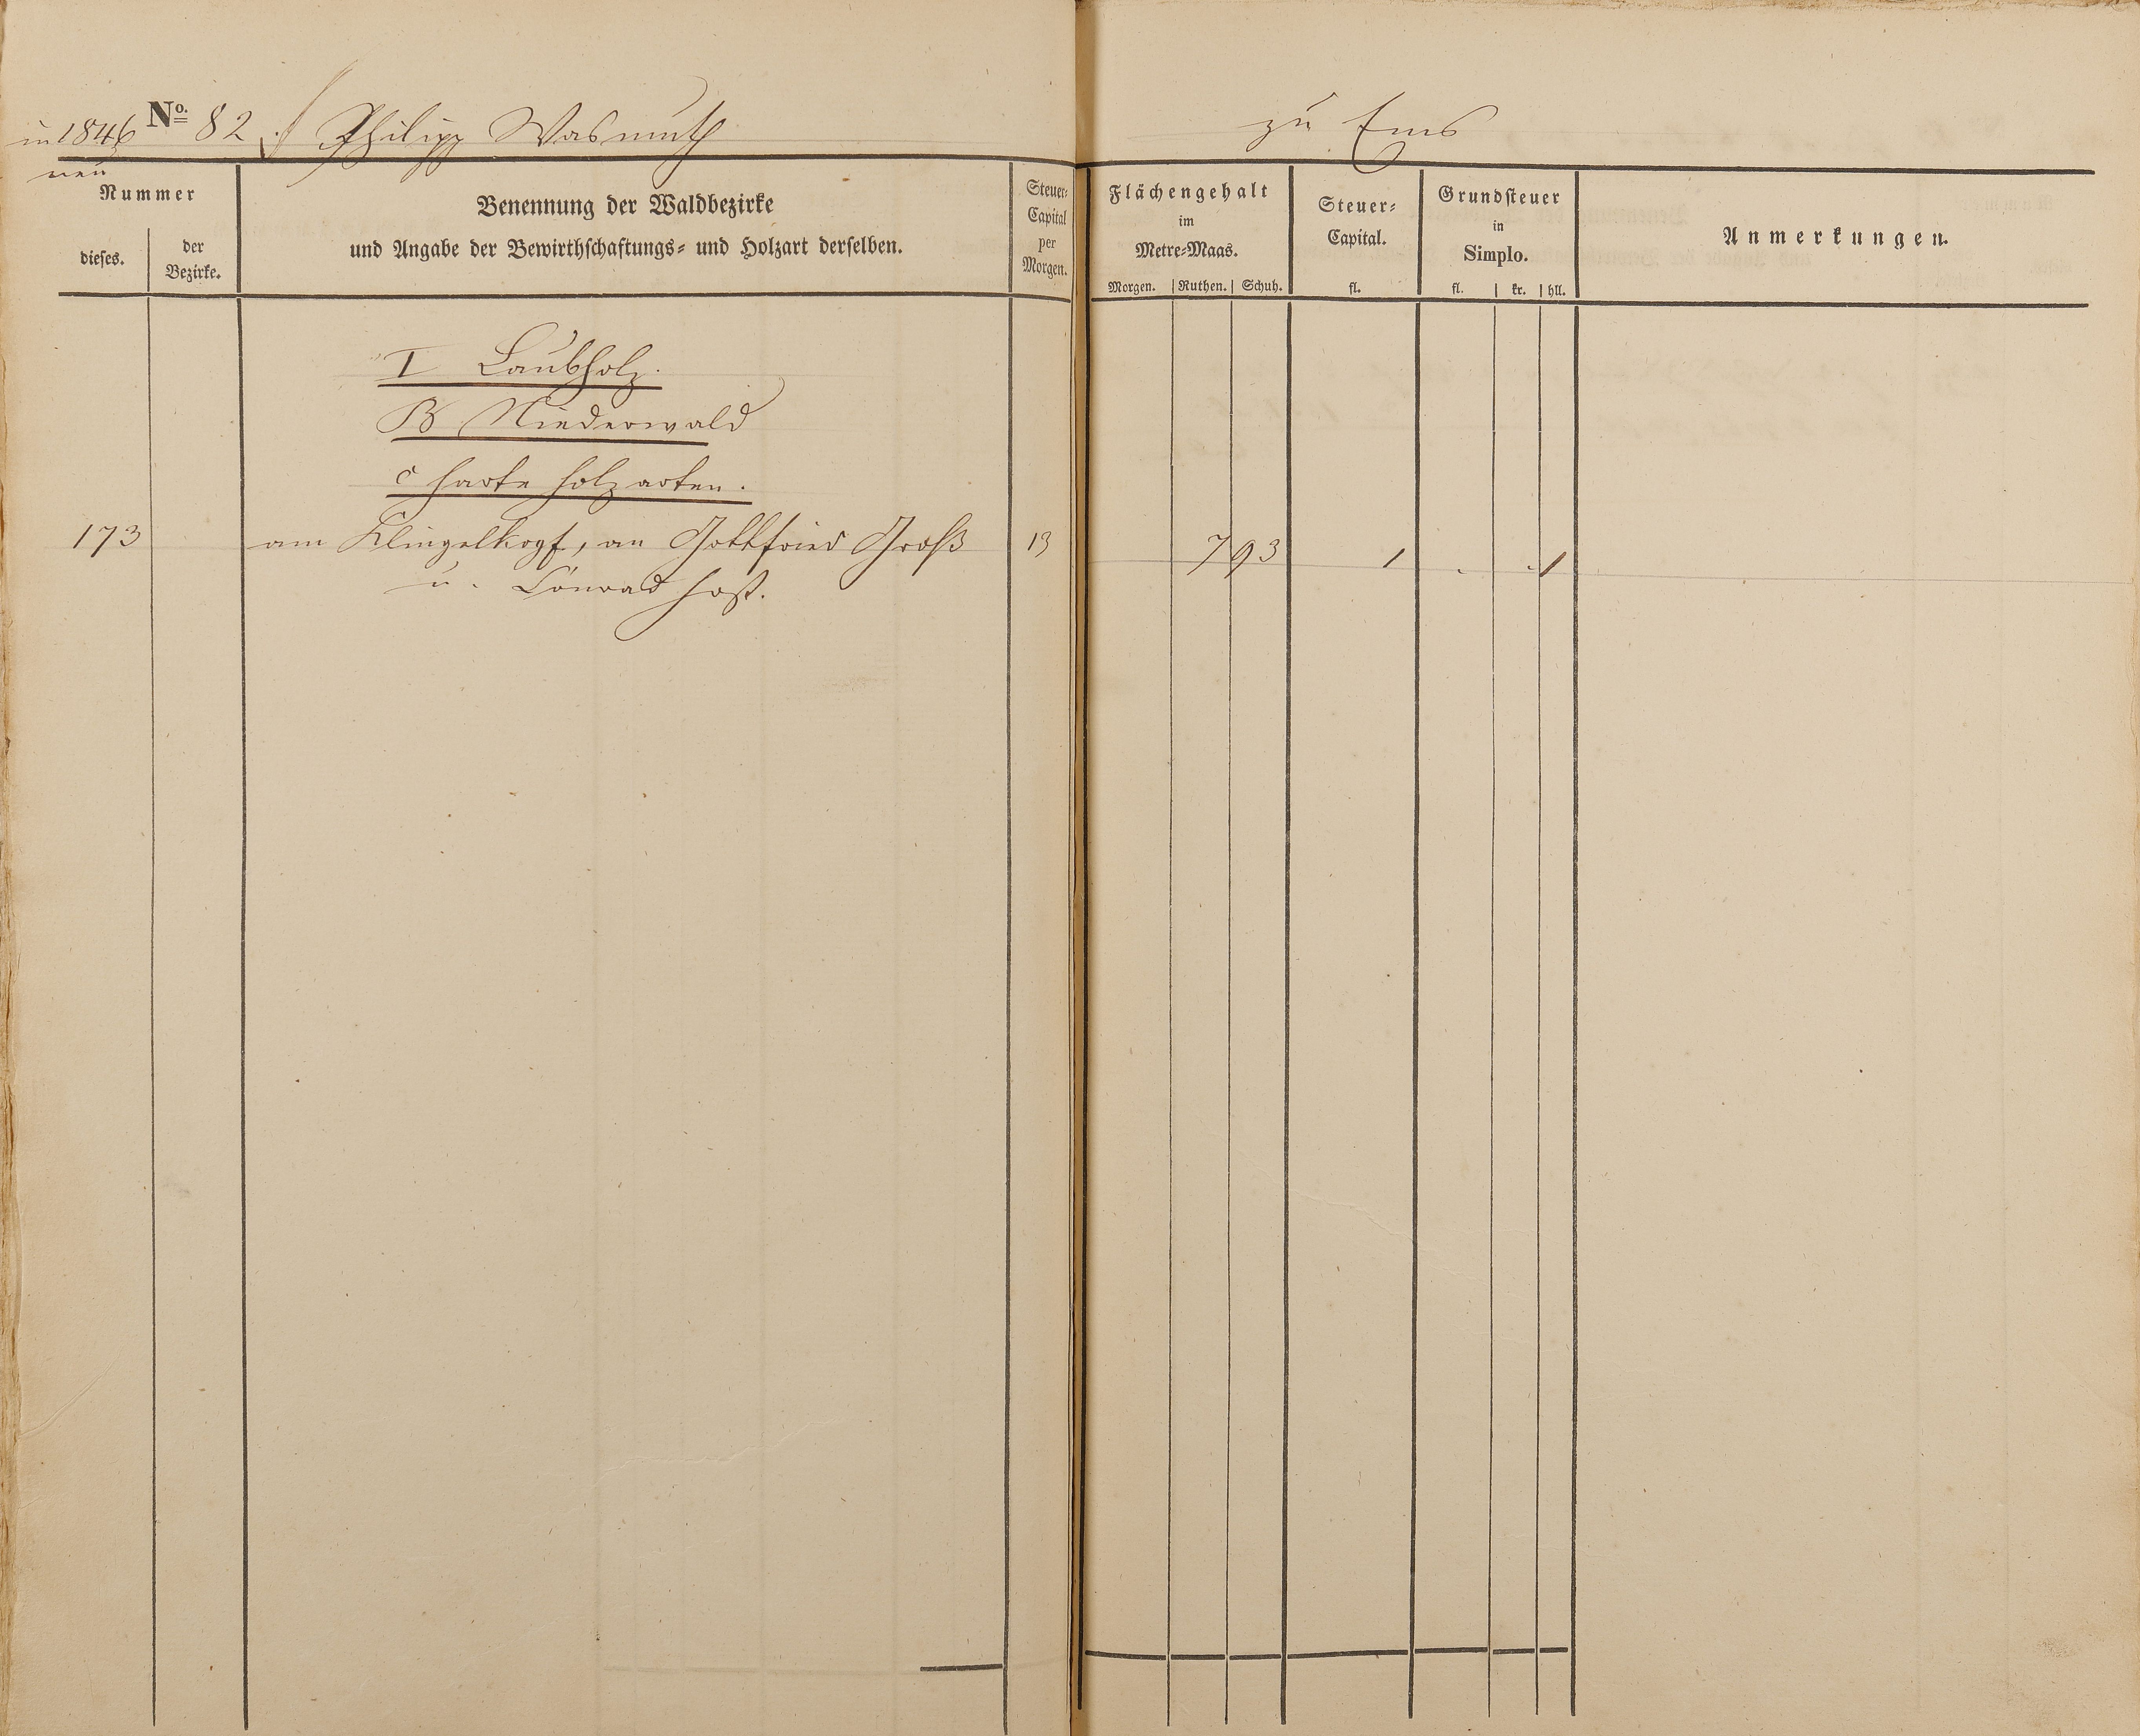 in 1846 No. 82. Philipp Wasmuth zu Ems
neu
Nummer
dieses.
der
Bezirke.
Benennung der Waldbezirke
und Angabe der Bewirthschaftungs- und Holzart derselben.
Steuer-
Capital
per
Morgen.
Flächengehalt
im
Metre-Maas.
Morgen. Ruthen. Schuh.
Steuer-
Capital.
fl.
Grundsteuer
in
Simplo.
fl. kr. hll.
Anmerkungen.
I Laubholz.
B Niederwald
c harte Holzarten.
173 am Klingelkopf, an Gottfried Groß 13 7 93 1 . . 1
u. Conrad Host.